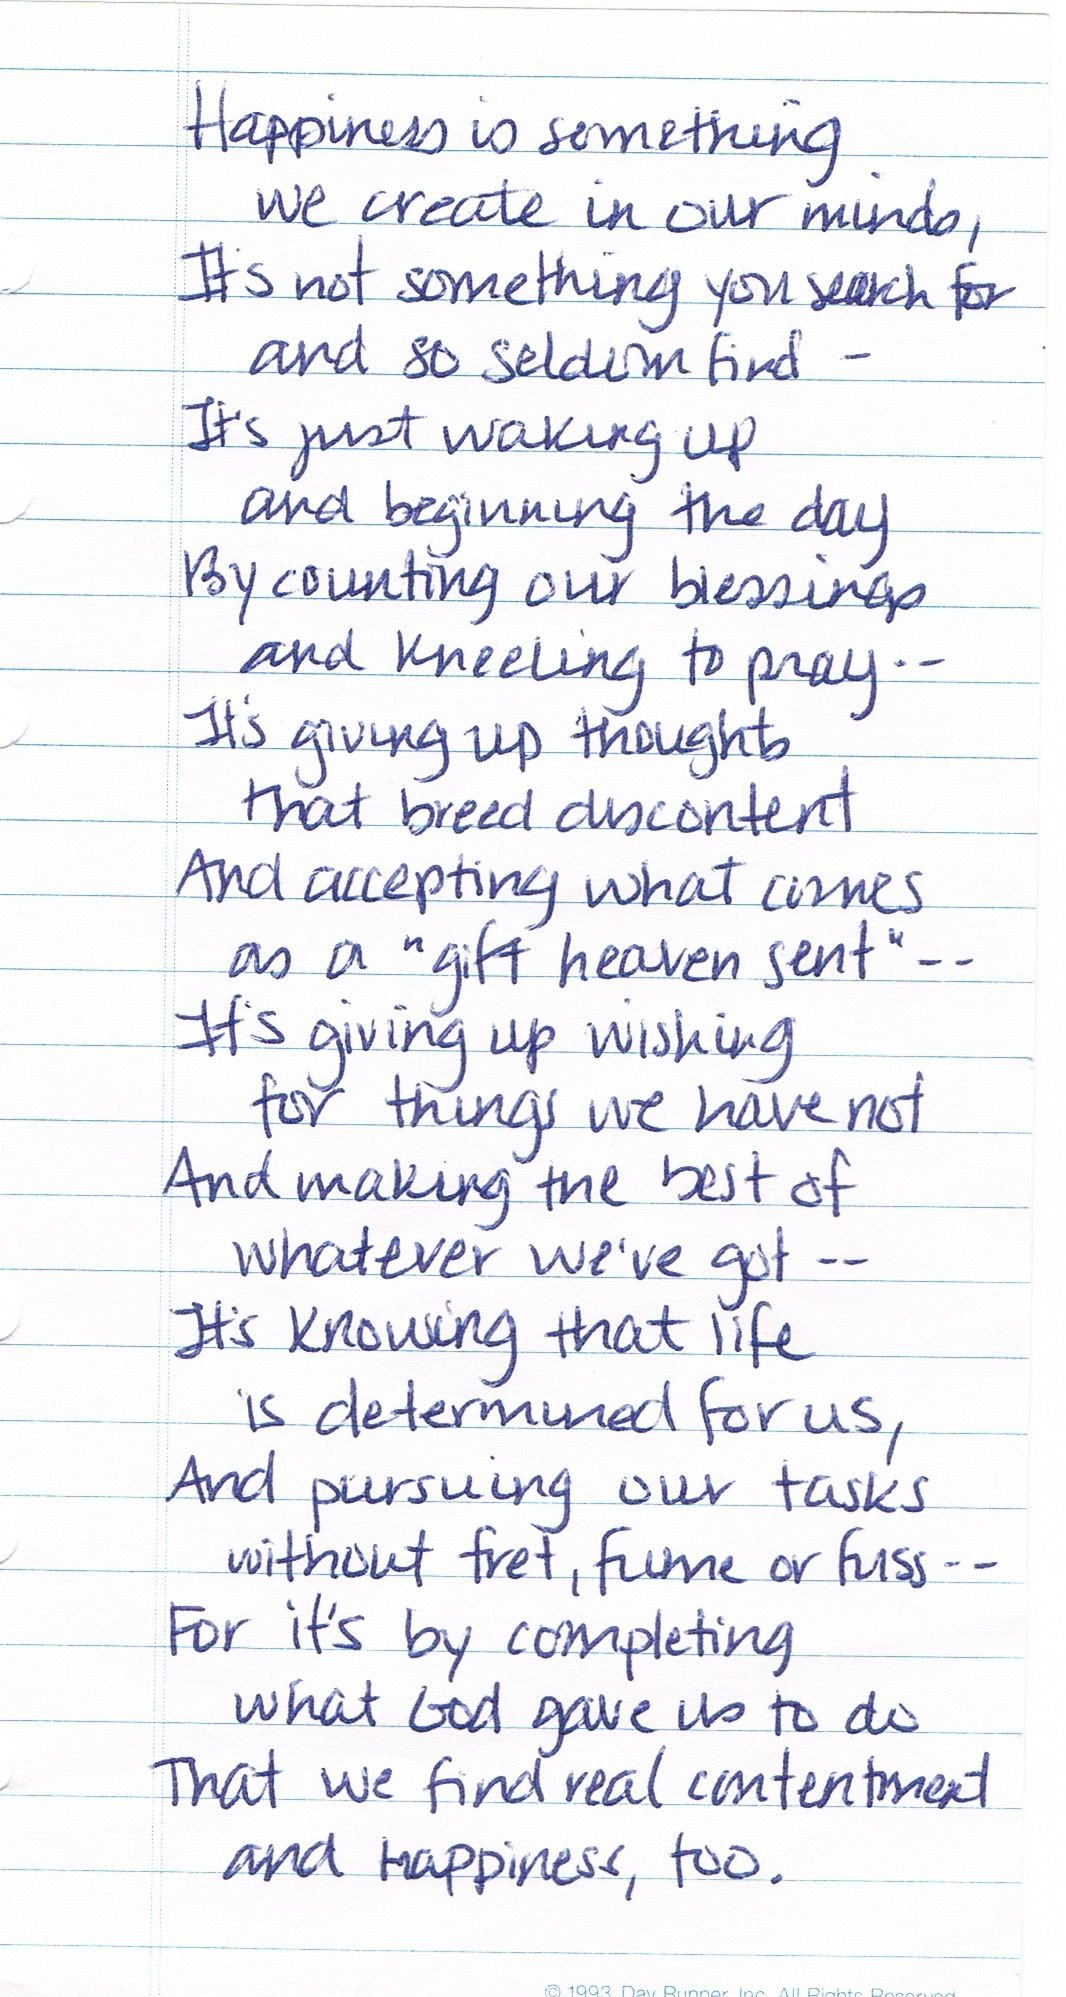 Happiness is something
we create in our minds,
It's not something you search for
and so seldom find -
It's just waking up
and beginning the day
By counting our blessings
and kneeling to pray --
It's giving up thoughts
that breed discontent
And accepting what comes
as a "gift heaven sent" --
It's giving up wishing
for things we have not
And making the best of
whatever we've got --
It's knowing that life
is determined for us,
And pursuing our tasks
without fret, fume or fuss --
For it's by completing
what God gave us to do
That we find real contentment
and happiness, too.
© 1993 Day Runner, Inc. All Rights Reserved